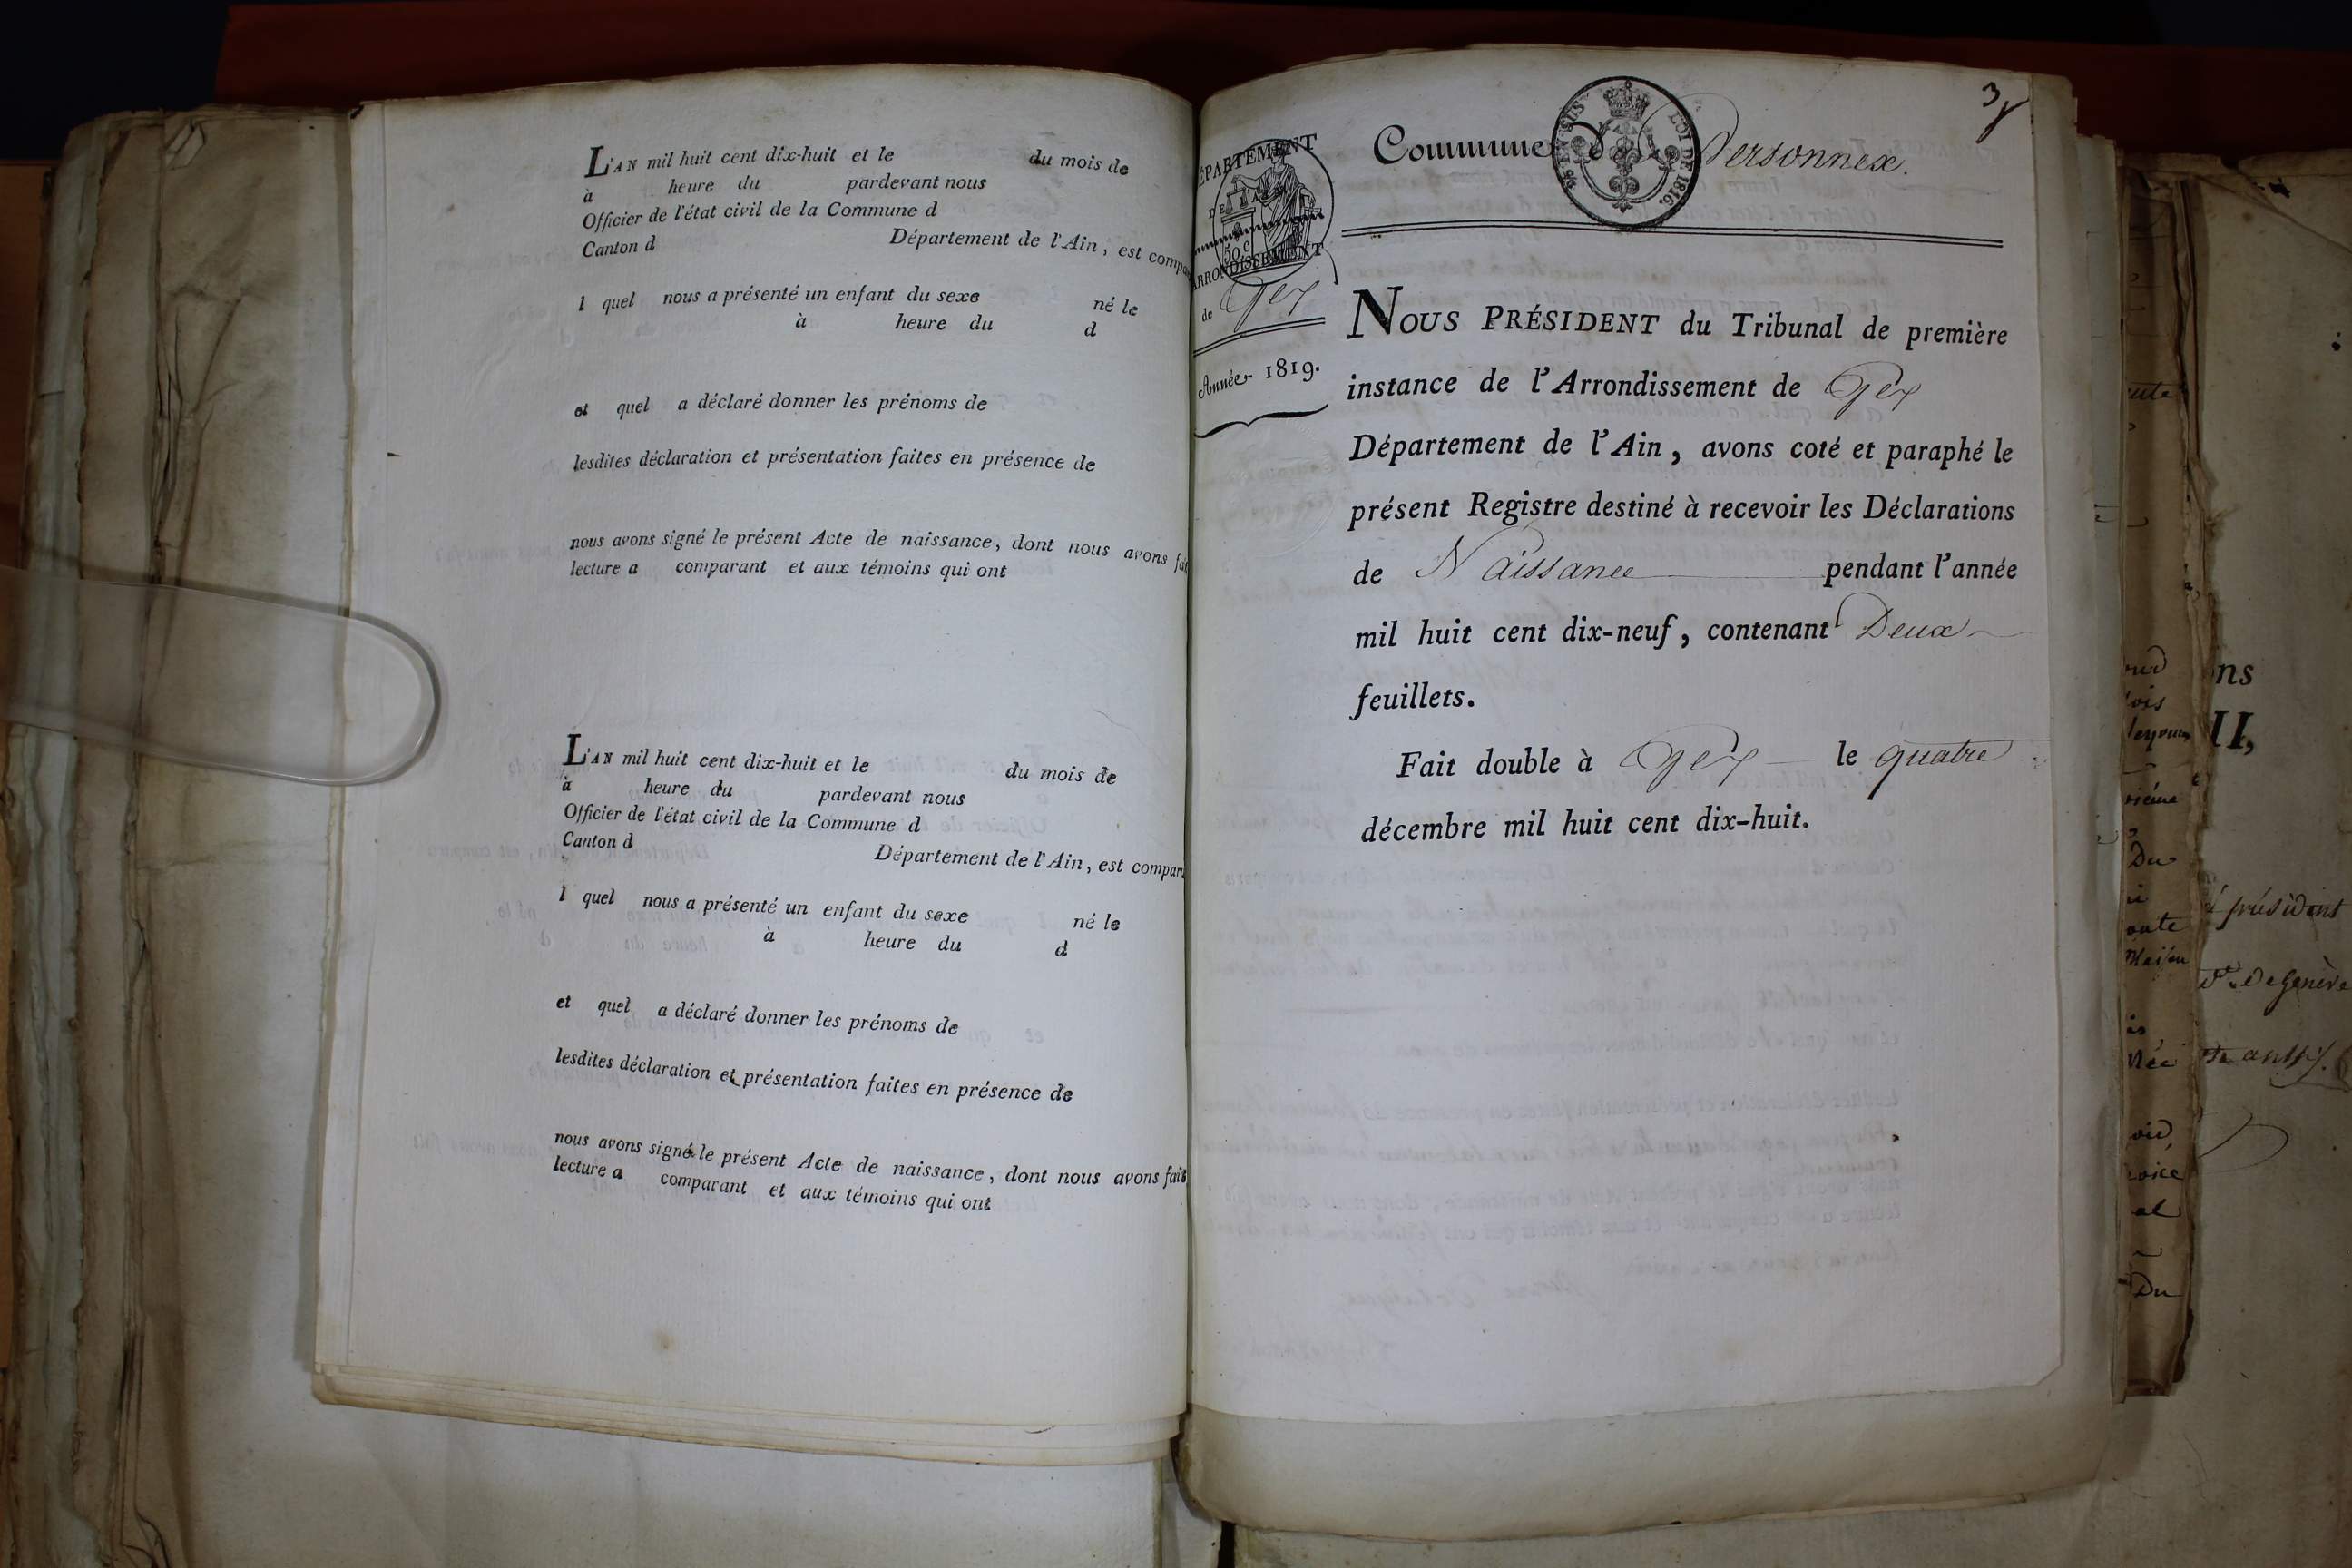 L'AN mil huit cent dix-huit et le du mois de
à heure du pardevant nous
Officier de l'état civil de la Commune d
Canton d Département de l'Ain, est compa
l quel nous a présenté un enfant du sexe né le
à heure du d
et quel a déclaré donner les prénoms de
lesdites déclaration et présentation faites en présence de
nous avons signé le présent Acte de naissance, dont nous avons fai
lecture a comparant et aux témoins qui ont
L'AN mil huit cent dix-huit et le du mois de
à heure du pardevant nous
Officier de l'état civil de la Commune d
Canton d Département de l'Ain, est compar
l quel nous a présenté un enfant du sexe né le
à heure du d
et quel a déclaré donner les prénoms de
lesdites déclaration et présentation faites en présence de
nous avons signé le présent Acte de naissance, dont nous avons fait
lecture a comparant et aux témoins qui ont
3
ÉPARTEMENT
DE L'AIN
50 c
ARRONDISSEMENT
de Gex
Année 1819.
Commune de Versonnex.
EN SUS
LOI DE 1816.
NOUS PRÉSIDENT du Tribunal de première
instance de l'Arrondissement de Gex
Département de l'Ain, avons coté et paraphé le
présent Registre destiné à recevoir les Déclarations
de Naissance pendant l'année
mil huit cent dix-neuf, contenant Deux
feuillets.
Fait double à Gex le quatre
décembre mil huit cent dix-huit.
ns
II,
président
De Genève
Du
Du